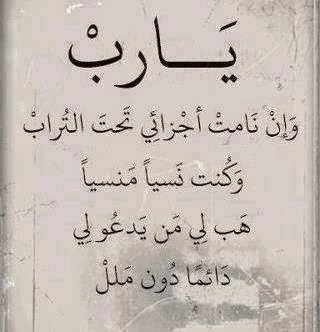 يَـــاربْ
وَإنْ نَامتْ أجْزائِي تَحتَ التُرابْ
وَكُنت نَسياً مَنسياً
هَب لِي مَن يَدعُو لِي
دَائمًا دُون مَللْ